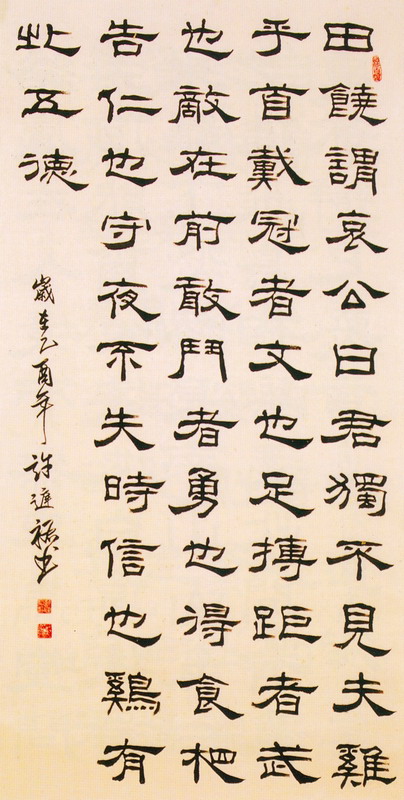 田饒謂哀公曰君獨不見夫雞
乎首戴冠者文也足搏距者武
也敵在前敢鬥者勇也得食杷
告仁也守夜不失時信也鷄有
此五德
歲在乙酉年 許 書